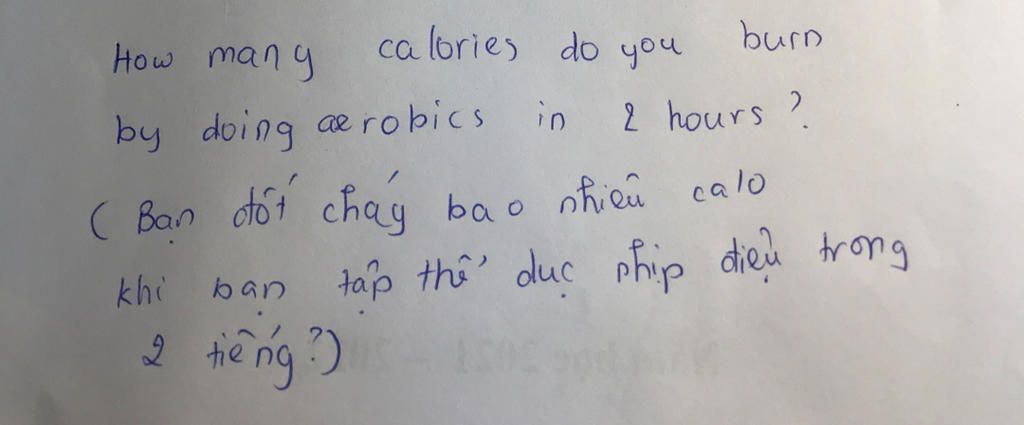 How many calories do you burn
by doing aerobics in 2 hours?
( Bạn đốt cháy bao nhiêu calo
khi bạn tập thể dục nhịp điệu trong
2 tiếng?)